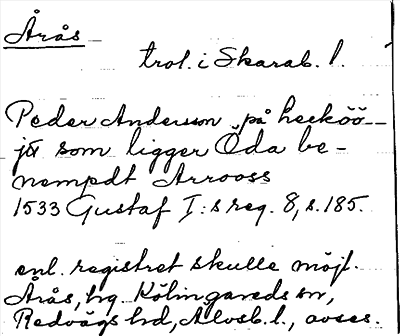 Årås
trol. i Skarab. l.
Peder Andersson på heeköö-
jör som ligger Öda be-
nempdt Arrooss
1533 Gustaf I:s reg. 8, s. 185.
enl. registret skulle möjl.
Årås, hg. Kölingareds sn,
Redvägs hd, Älvsb. l., avses.